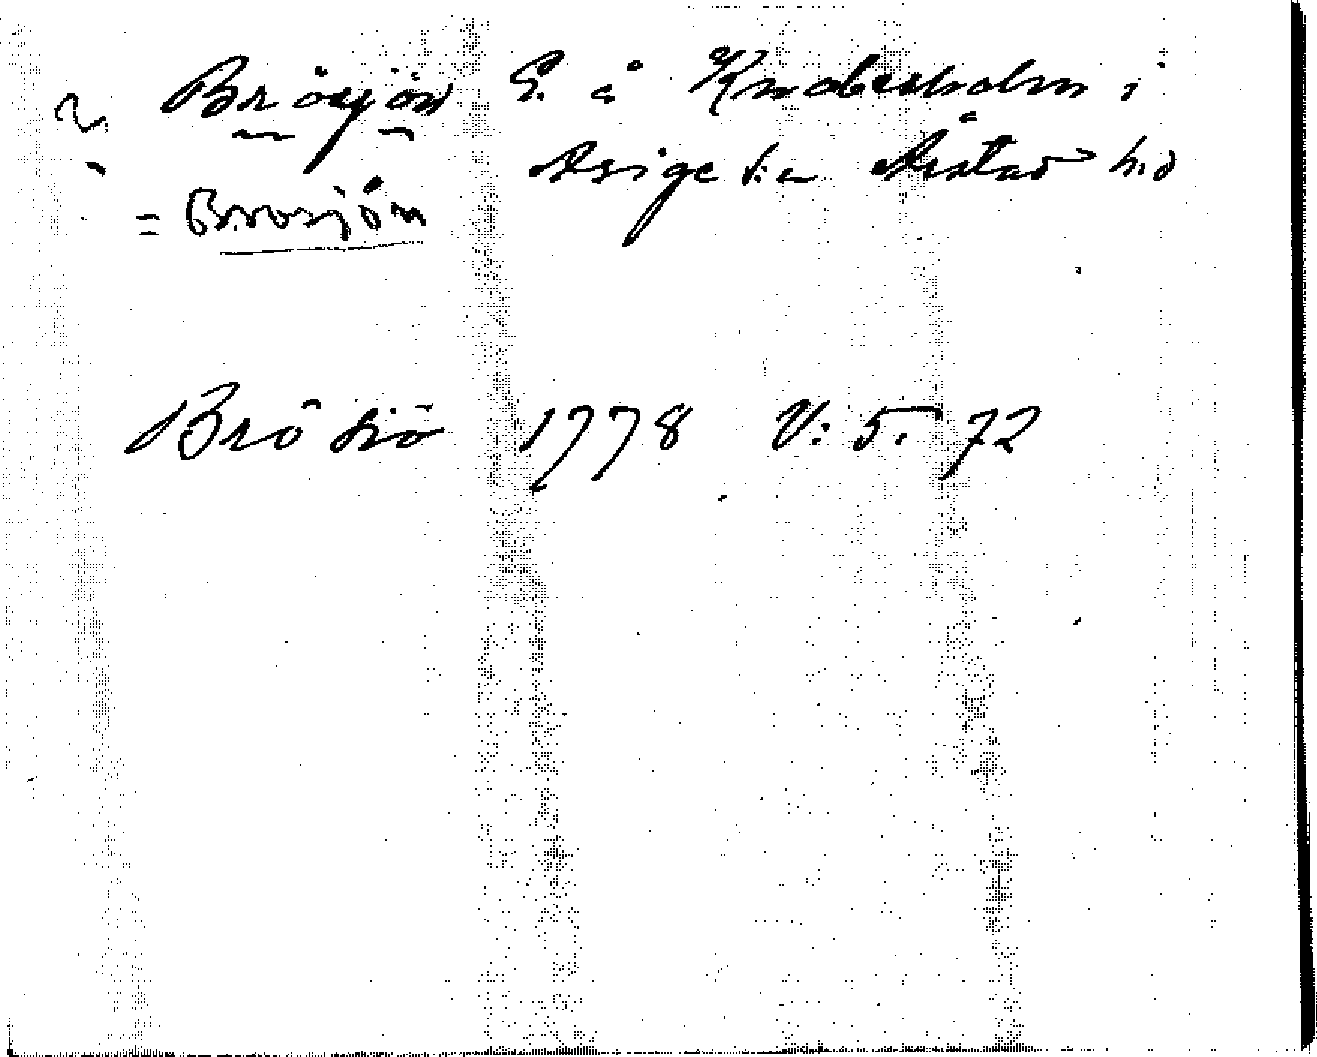 Brösjön S. å Knobesholm i
Asige s:n Årstad hd
= Brosjön
Brösiö 1778 V: 5. 72